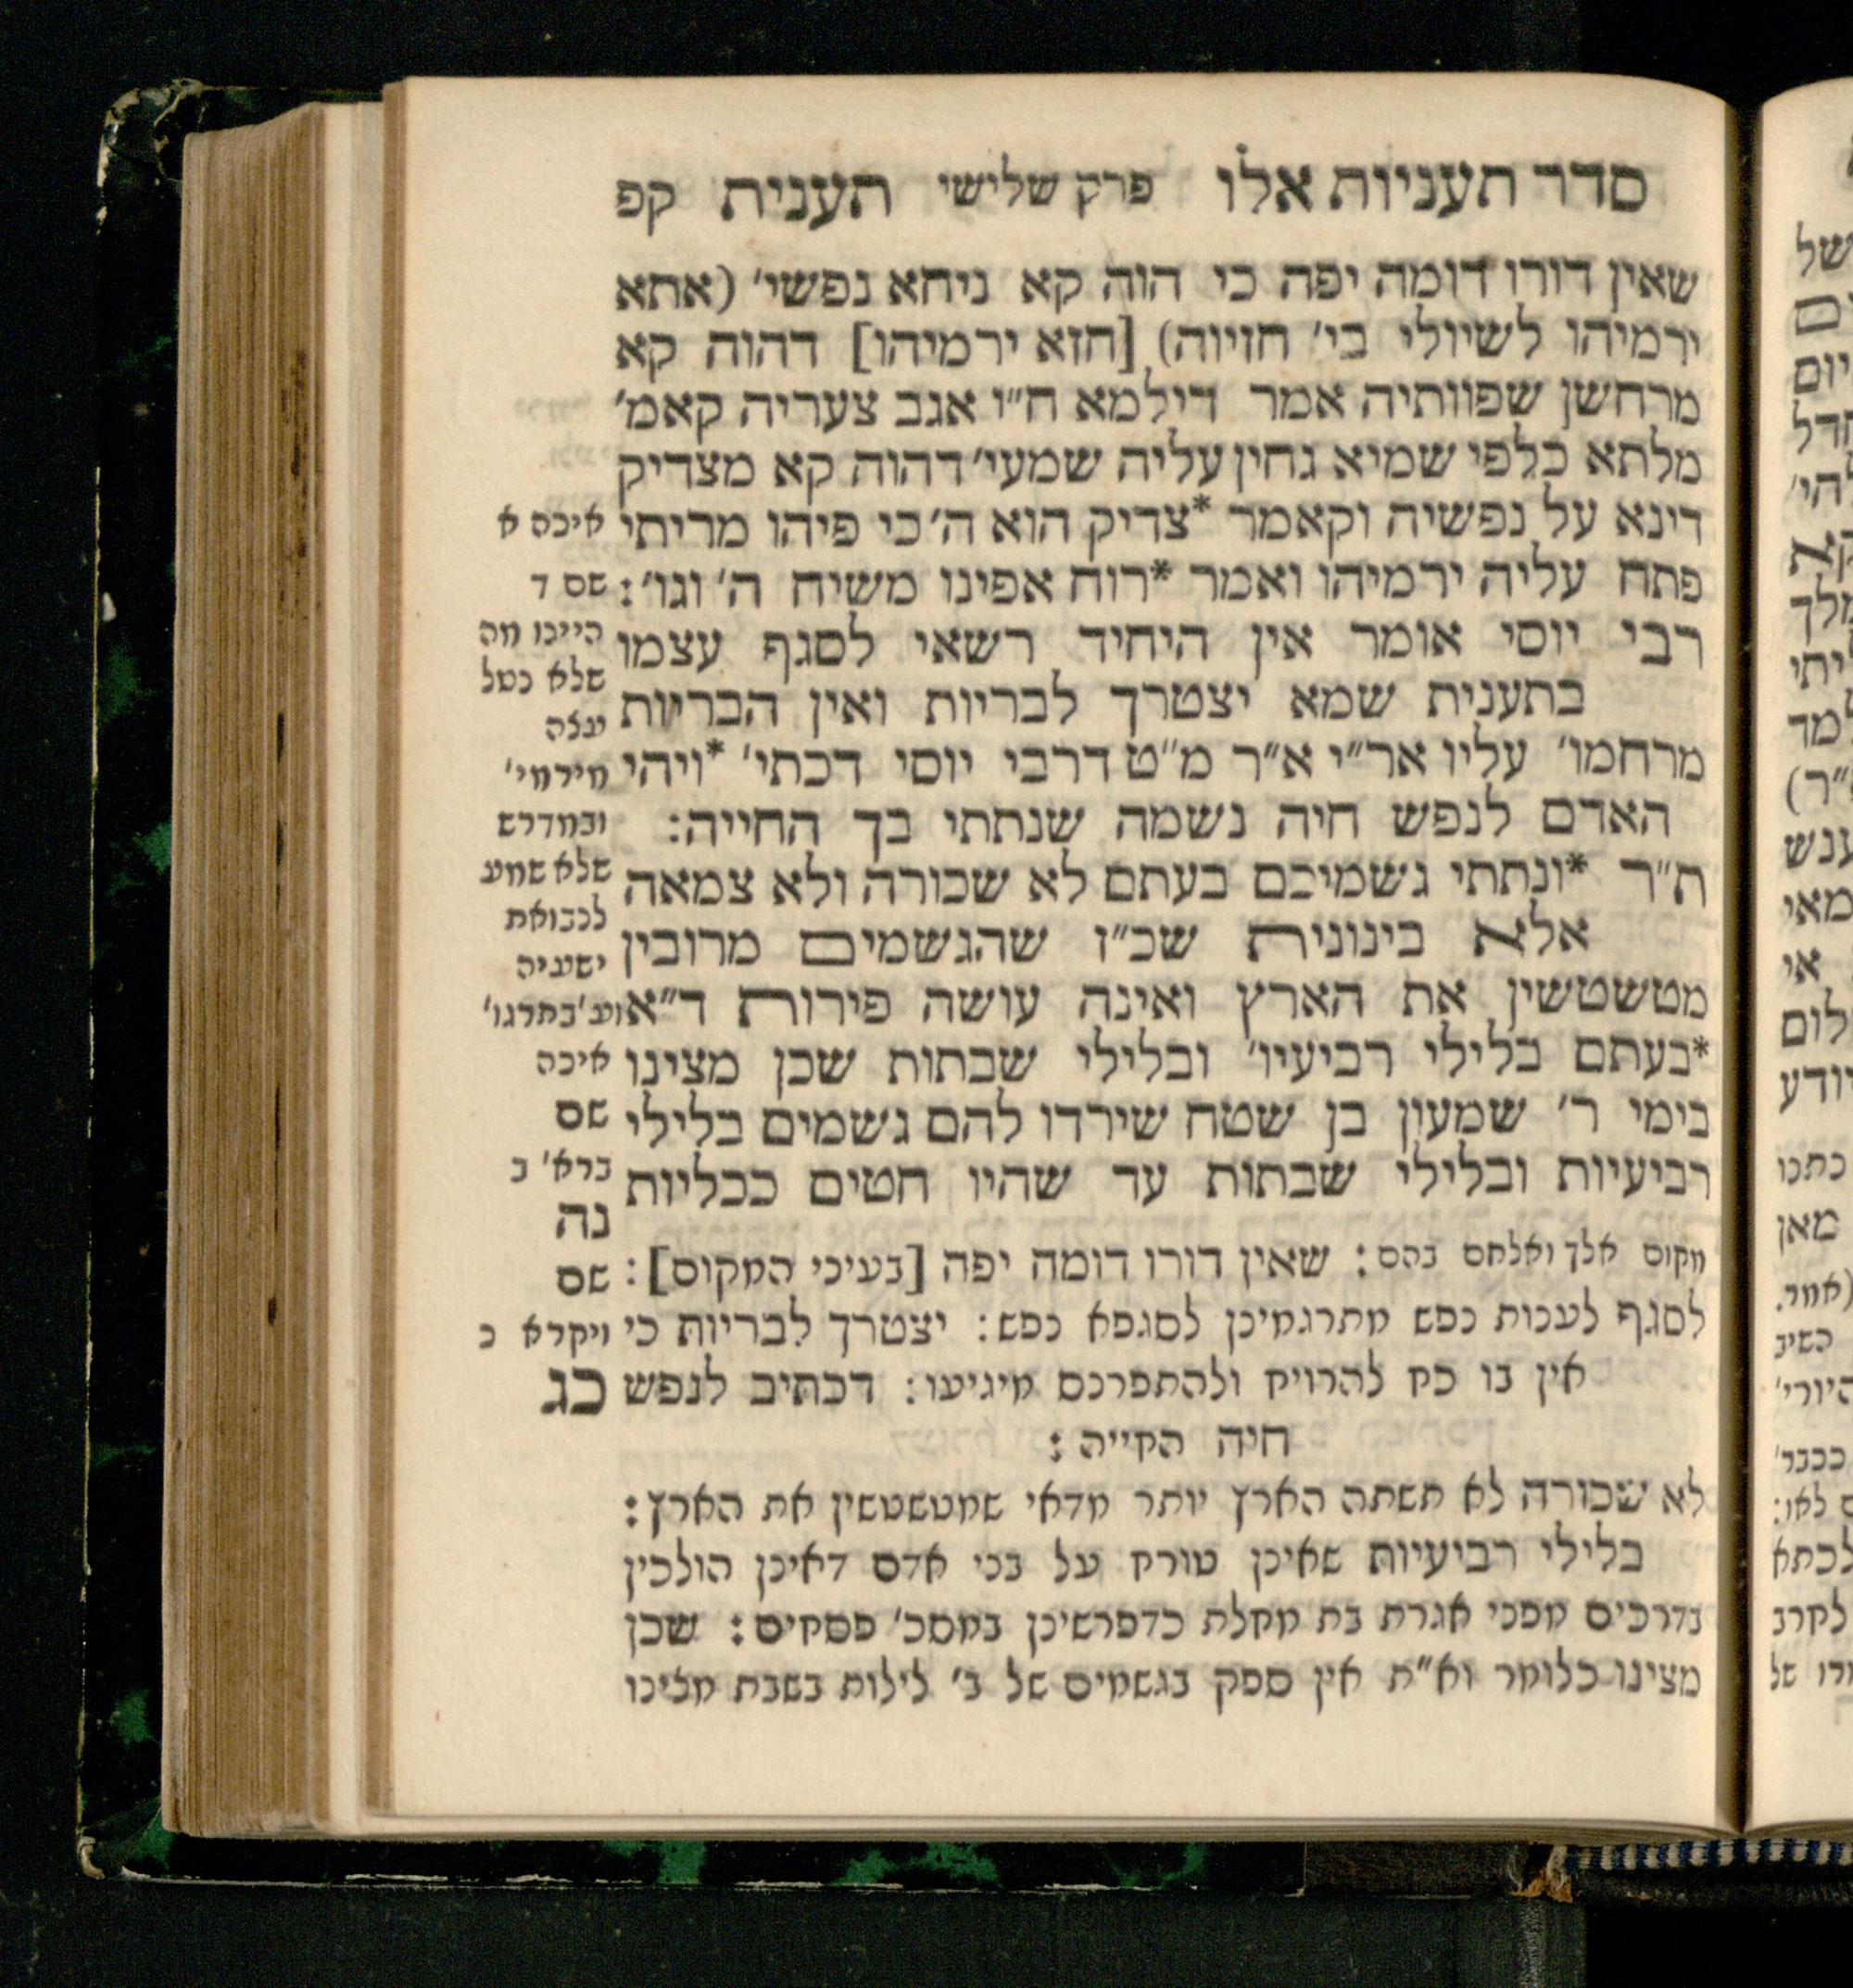 סדר תעניות אלו פרק שלישי תענית קפ
שאין דורו דומה יפה כי הוה קא ניחא נפשי׳ (אתא
ירמיהו לשיולי בי׳ חזיוה) [חזא ירמיהו] דהוה קא
מרחשן שפוותיה אמר דילמא ח״ו אגב צעריה קאמ׳
מלתא כלפי שמיא גחין עליה שמעי׳ דהוה קא מצדיק
דינא על נפשיה וקאמר *צדיק הוא ה׳ כי פיהו מריתי
פתח עליה ירמיהו ואמר *רוח אפינו משיח ה׳ וגו׳:
רבי יוסי אומר אין היחיד רשאי לסגף עצמו
בתענית שמא יצטרך לבריות ואין הבריות
מרחמו׳ עליו אר״י א״ר מ״ט דרבי יוסי דכתי׳ *ויהי
האדם לנפש חיה נשמה שנתתי בך החייה:
ת״ר *ונתתי גשמיכם בעתם לא שכורה ולא צמאה
אלא בינונית שכ״ז שהגשמים מרובין
מטשטשין את הארץ ואינה עושה פירות ד״א
*בעתם בלילי רביעיו׳ ובלילי שבתות שכן מצינו
בימי ר׳ שמעון בן שטח שירדו להם גשמים בלילי
רביעיות ובלילי שבתות עד שהיו חטים ככליות
מקום אלך ואלחם בהם: שאין דורו דומה יפה [בעיני המקום]:
לסגף לענות נפש מתרגמינן לסגפא נפש: יצטרך לבריות כי
אין בו כח להרויח ולהתפרנס מיגיעו: דכתיב לנפש
חיה החייה:
לא שכורה לא תשתה הארץ יותר מדאי שמטשטשין את הארץ:
בלילי רביעיות שאינן טורח על בני אדם דאינן הולכין
בדרכים מפני אגרת בת מחלת כדפרשינן במסכ׳ פסחים: שכן
מצינו כלומר וא״ת אין ספק בגשמים של ב׳ לילות בשבת מצינו
איכה א
שם ד
היינו מה
שלא נטל
עצה
מירמי׳
ובמדרש
שלא שמע
לנבואת
ישעיה
וע׳ בתרגו׳
איכה
שם
ברא׳ ב
נה
שם
ויקרא כ
כג